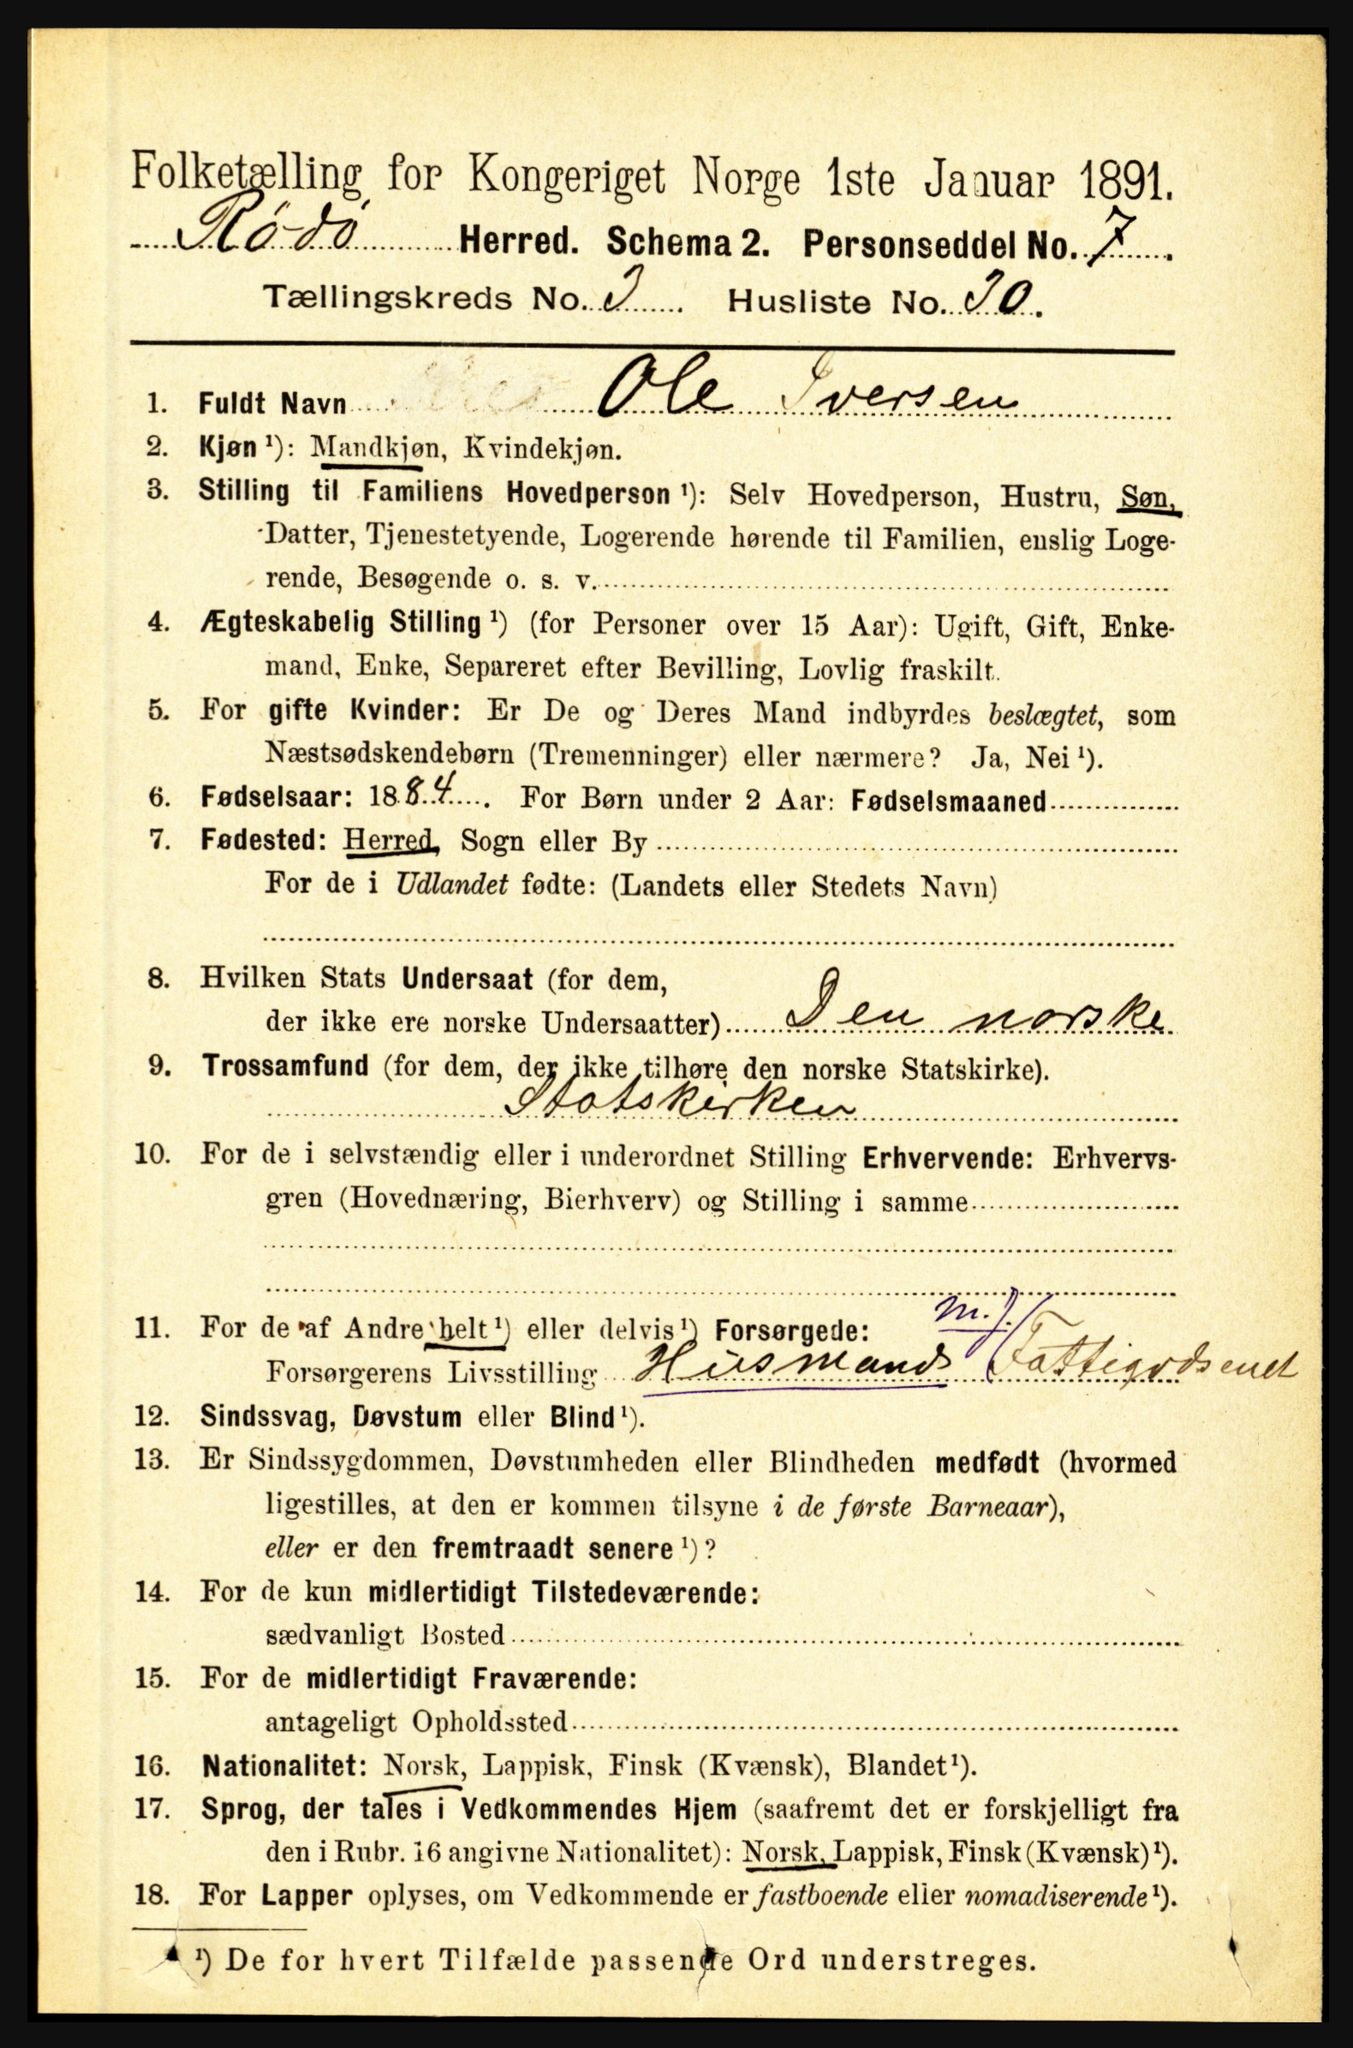 Folketælling for Kongeriget Norge 1ste Januar 1891.
Rödö Herred. Schema 2. Personseddel No. 7.
Tællingskreds No. 3. Husliste No. 30.
1. Fuldt Navn Ole Iversen
2. Kjøn ¹): Mandkjøn, Kvindekjøn.
3. Stilling til Familiens Hovedperson ¹): Selv Hovedperson, Hustru, Søn,
Datter, Tjenestetyende, Logerende hørende til Familien, enslig Loge-
rende, Besøgende o. s. v.
4. Ægteskabelig Stilling ¹) (for Personer over 15 Aar): Ugift, Gift, Enke-
mand, Enke, Separeret efter Bevilling, Lovlig fraskilt.
5. For gifte Kvinder: Er De og Deres Mand indbyrdes beslægtet, som
Næstsødskendebørn (Tremenninger) eller nærmere? Ja, Nei ¹).
6. Fødselsaar: 1884. For Børn under 2 Aar: Fødselsmaaned
7. Fødested: Herred, Sogn eller By
For de i Udlandet fødte: (Landets eller Stedets Navn)
8. Hvilken Stats Undersaat (for dem,
der ikke ere norske Undersaatter) Den norske
9. Trossamfund (for dem, der ikke tilhøre den norske Statskirke).
Statskirken
10. For de i selvstændig eller i underordnet Stilling Erhvervende: Erhvervs-
gren (Hovednæring, Bierhverv) og Stilling i samme
11. For de af Andre helt ¹) eller delvis ¹) Forsørgede: m. J.
Forsørgerens Livsstilling Husmands
12. Sindssvag, Døvstum eller Blind ¹).
13. Er Sindssygdommen, Døvstumheden eller Blindheden medfødt (hvormed
ligestilles, at den er kommen tilsyne i de første Barneaar),
eller er den fremtraadt senere ¹)?
14. For de kun midlertidigt Tilstedeværende:
sædvanligt Bosted
15. For de midlertidigt Fraværende:
antageligt Opholdssted
16. Nationalitet: Norsk, Lappisk, Finsk (Kvænsk), Blandet ¹).
17. Sprog, der tales i Vedkommendes Hjem (saafremt det er forskjelligt fra
den i Rubr. 16 angivne Nationalitet): Norsk, Lappisk, Finsk (Kvænsk) ¹).
18. For Lapper oplyses, om Vedkommende er fastboende eller nomadiserende ¹).
¹) De for hvert Tilfælde passende Ord understreges.